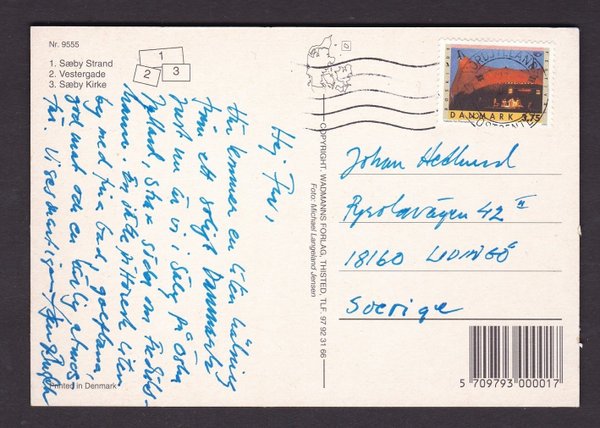 Nr. 9555
1. Sæby Strand
2. Vestergade
3. Sæby Kirke
1
2
3
Hej
Här kommer en liten hälsning
från ett soligt Danmark.
Just nu är vi i Sæby på östra
Jylland, strax söder om Fredriks-
hamn. En jätte pittoresk liten
by med fina bad, golfbana,
god mat och en härlig atmos-
fär. Vi ses snart igen
Printed in Denmark
COPYRIGHT: WADMANNS FORLAG, THISTED, TLF. 97 92 31 66
Foto: Michael Langeland Jensen
DANMARK 3.75
Johan Hedlund
Pyrolavägen 42
18160 LIDINGÖ
Sverige
5 709793 000017